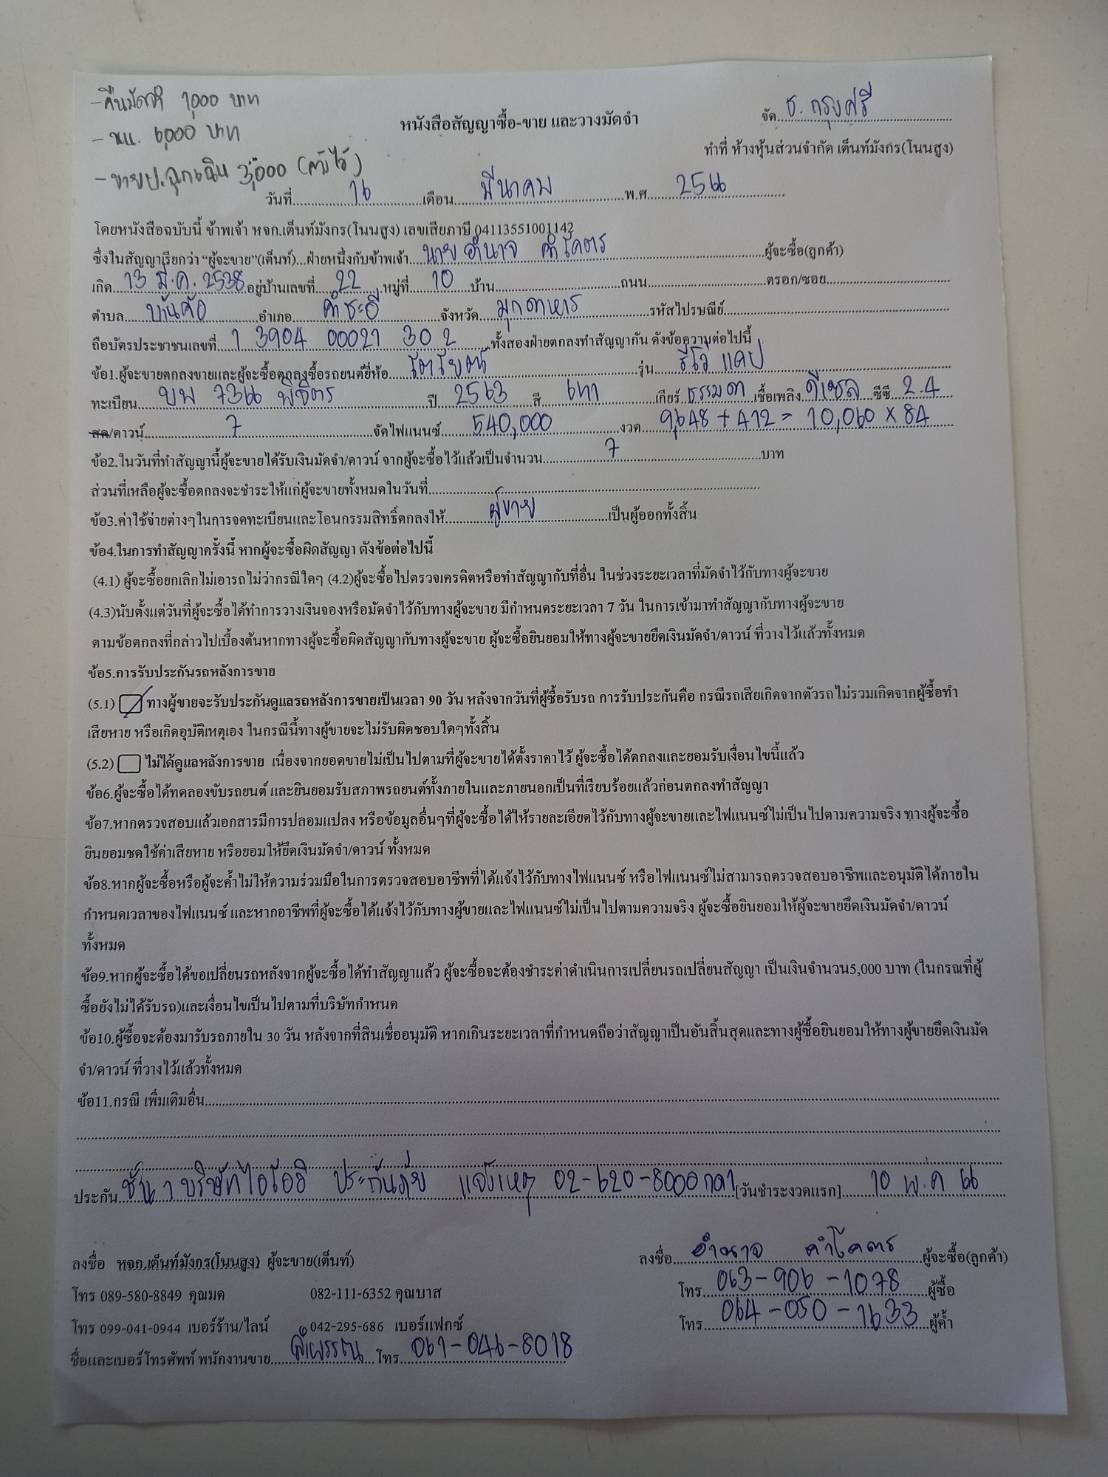 -คืนมัดจำ 1000 บาท
- พบ. 6,000 บาท
- ขายป.ฉุกเฉิน 3,000 (ค้ำไว้)
จัด ธ. กรุงศรี
หนังสือสัญญาซื้อ-ขาย และวางมัดจำ
ทำที่ ห้างหุ้นส่วนจำกัด เต็นท์มังกร(โนนสูง)
วันที่ 16 เดือน มีนาคม พ.ศ. 2566
โดยหนังสือฉบับนี้ ข้าพเจ้า หจก.เต็นท์มังกร(โนนสูง) เลขเสียภาษี 04113551001142
ซึ่งในสัญญาเรียกว่า "ผู้จะขาย"(เต็นท์)...ฝ่ายหนึ่งกับข้าพเจ้า นาย อำนาจ คำโคตร ผู้จะซื้อ(ลูกค้า)
เกิด 13 มี.ค. 2538 อยู่บ้านเลขที่ 22 หมู่ที่ 10 บ้าน ถนน ตรอก/ซอย
ตำบล บ้านค้อ อำเภอ คำชะอี จังหวัด มุกดาหาร รหัสไปรษณีย์
ถือบัตรประชาชนเลขที่ 1 3904 00021 30 2 ทั้งสองฝ่ายตกลงทำสัญญากัน ดังข้อความต่อไปนี้
ข้อ1.ผู้จะขายตกลงขายและผู้จะซื้อตกลงซื้อรถยนต์ยี่ห้อ โตโยต้า รุ่น รีโว่ แคป
ทะเบียน บพ 7366 พิจิตร ปี 2563 สี เทา เกียร์ ธรรมดา เชื้อเพลิง ดีเซล ซีซี 2.4
สด/ดาวน์ 7 จัดไฟแนนซ์ 540,000 งวด 9,648 + 412 = 10,060 x 84
ข้อ2.ในวันที่ทำสัญญานี้ผู้จะขายได้รับเงินมัดจำ/ดาวน์ จากผู้จะซื้อไว้แล้วเป็นจำนวน 7 บาท
ส่วนที่เหลือผู้จะซื้อตกลงจะชำระให้แก่ผู้จะขายทั้งหมดในวันที่
ข้อ3.ค่าใช้จ่ายต่างๆในการจดทะเบียนและโอนกรรมสิทธิ์ตกลงให้ ผู้ขาย เป็นผู้ออกทั้งสิ้น
ข้อ4.ในการทำสัญญาครั้งนี้ หากผู้จะซื้อผิดสัญญา ดังข้อต่อไปนี้
(4.1) ผู้จะซื้อยกเลิกไม่เอารถไม่ว่ากรณีใดๆ (4.2)ผู้จะซื้อไปตรวจเครดิตหรือทำสัญญากับที่อื่น ในช่วงระยะเวลาที่มัดจำไว้กับทางผู้จะขาย
(4.3)นับตั้งแต่วันที่ผู้จะซื้อได้ทำการวางเงินจองหรือมัดจำไว้กับทางผู้จะขาย มีกำหนดระยะเวลา 7 วัน ในการเข้ามาทำสัญญากับทางผู้จะขาย
ตามข้อตกลงที่กล่าวไปเบื้องต้นหากทางผู้จะซื้อผิดสัญญากับทางผู้จะขาย ผู้จะซื้อยินยอมให้ทางผู้จะขายยึดเงินมัดจำ/ดาวน์ ที่วางไว้แล้วทั้งหมด
ข้อ5.การรับประกันรถหลังการขาย
(5.1) ทางผู้ขายจะรับประกันดูแลรถหลังการขายเป็นเวลา 90 วัน หลังจากวันที่ผู้ซื้อรับรถ การรับประกันคือ กรณีรถเสียเกิดจากตัวรถ ไม่รวมเกิดจากผู้ซื้อทำ
เสียหาย หรือเกิดอุบัติเหตุเอง ในกรณีนี้ทางผู้ขายจะไม่รับผิดชอบใดๆทั้งสิ้น
(5.2) ไม่ได้ดูแลหลังการขาย เนื่องจากยอดขายไม่เป็นไปตามที่ผู้จะขายได้ตั้งราคาไว้ ผู้จะซื้อได้ตกลงและยอมรับเงื่อนไขนี้แล้ว
ข้อ6.ผู้จะซื้อได้ทดลองขับรถยนต์ และยินยอมรับสภาพรถยนต์ทั้งภายในและภายนอกเป็นที่เรียบร้อยแล้วก่อนตกลงทำสัญญา
ข้อ7.หากตรวจสอบแล้วเอกสารมีการปลอมแปลง หรือข้อมูลอื่นๆที่ผู้จะซื้อได้ให้รายละเอียดไว้กับทางผู้จะขายและไฟแนนซ์ไม่เป็นไปตามความจริง ทางผู้จะซื้อ
ยินยอมชดใช้ค่าเสียหาย หรือยอมให้ยึดเงินมัดจำ/ดาวน์ ทั้งหมด
ข้อ8.หากผู้จะซื้อหรือผู้จะค้ำไม่ให้ความร่วมมือในการตรวจสอบอาชีพที่ได้แจ้งไว้กับทางไฟแนนซ์ หรือไฟแนนซ์ไม่สามารถตรวจสอบอาชีพและอนุมัติได้ภายใน
กำหนดเวลาของไฟแนนซ์ และหากอาชีพที่ผู้จะซื้อได้แจ้งไว้กับทางผู้ขายและไฟแนนซ์ไม่เป็นไปตามความจริง ผู้จะซื้อยินยอมให้ผู้จะขายยึดเงินมัดจำ/ดาวน์
ทั้งหมด
ข้อ9.หากผู้จะซื้อได้ขอเปลี่ยนรถหลังจากผู้จะซื้อได้ทำสัญญาแล้ว ผู้จะซื้อจะต้องชำระค่าดำเนินการเปลี่ยนรถเปลี่ยนสัญญา เป็นเงินจำนวน5,000 บาท (ในกรณีที่ผู้
ซื้อยังไม่ได้รับรถ)และเงื่อนไขเป็นไปตามที่บริษัทกำหนด
ข้อ10.ผู้ซื้อจะต้องมารับรถภายใน 30 วัน หลังจากที่สินเชื่ออนุมัติ หากเกินระยะเวลาที่กำหนดถือว่าสัญญาเป็นอันสิ้นสุดและทางผู้ซื้อยินยอมให้ทางผู้ขายยึดเงินมัด
จำ/ดาวน์ ที่วางไว้แล้วทั้งหมด
ข้อ11.กรณี เพิ่มเติมอื่น
ประกัน ชั้น 1 บริษัทไอโออิ ประกันภัย แจ้งเหตุ 02-620-8000 กด1 [วันชำระงวดแรก] 10 พ.ค 66
ลงชื่อ หจก.เต็นท์มังกร(โนนสูง) ผู้จะขาย(เต็นท์) ลงชื่อ อำนาจ คำโคตร ผู้จะซื้อ(ลูกค้า)
โทร 089-580-8849 คุณมด 082-111-6352 คุณบาส โทร 063-906-1078 ผู้ซื้อ
โทร 099-041-0944 เบอร์ร้าน/ไลน์ 042-295-686 เบอร์แฟกซ์ โทร 064-050-1633 ผู้ค้ำ
ชื่อและเบอร์โทรศัพท์ พนักงานขาย โทร 061-046-8018